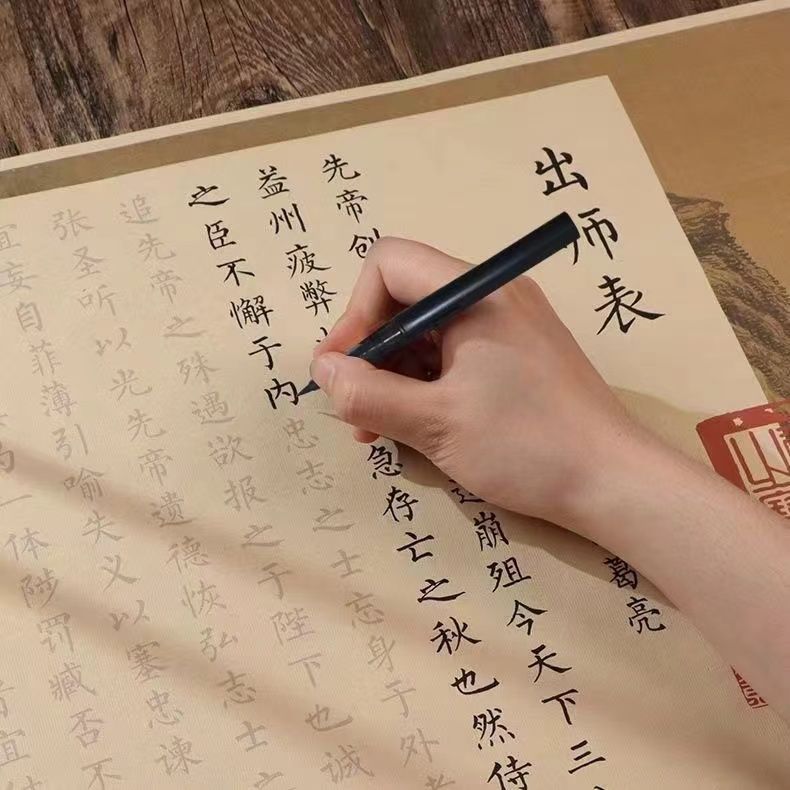 出师表
葛亮
先帝创崩殂今天下三
益州疲弊急存亡之秋也然侍
之臣不懈于内忠志之士忘身于外者
追先帝之殊遇欲报之于陛下也诚
张圣听以光先帝遗德恢弘志士之
宜妄自菲薄引喻失义以塞忠谏
一体陟罚臧否不
宜